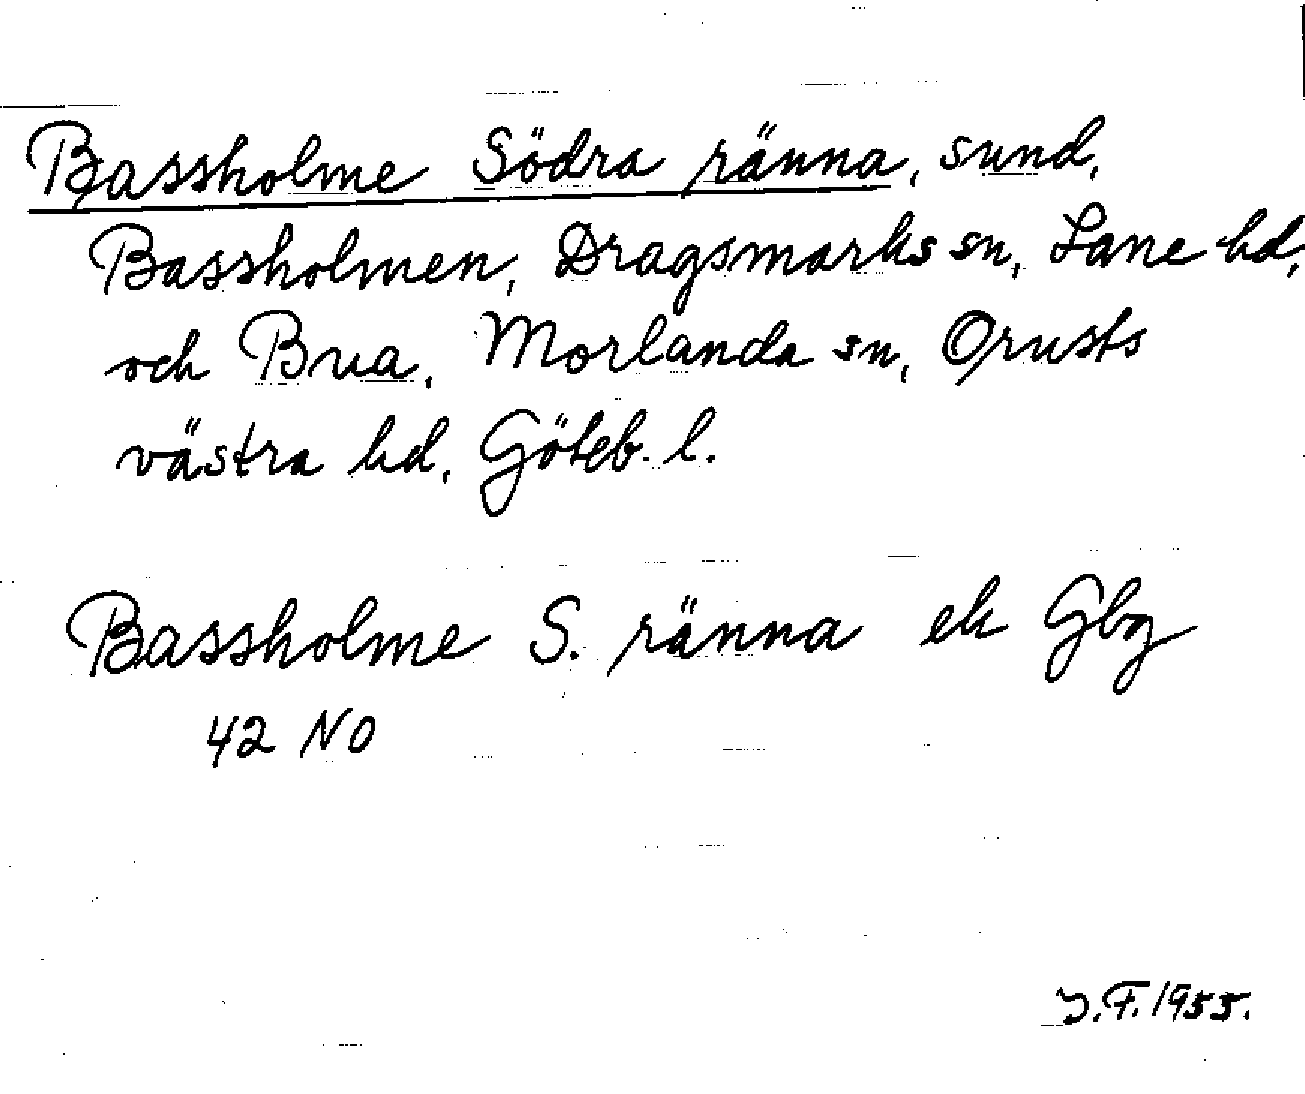 Bassholme Södra ränna, sund,
Bassholmen, Dragsmarks sn, Lane hd,
och Bua, Morlanda sn, Orusts
västra hd, Göteb. l.
Bassholme S. ränna ek Gbg
42 NO
J.F. 1955.